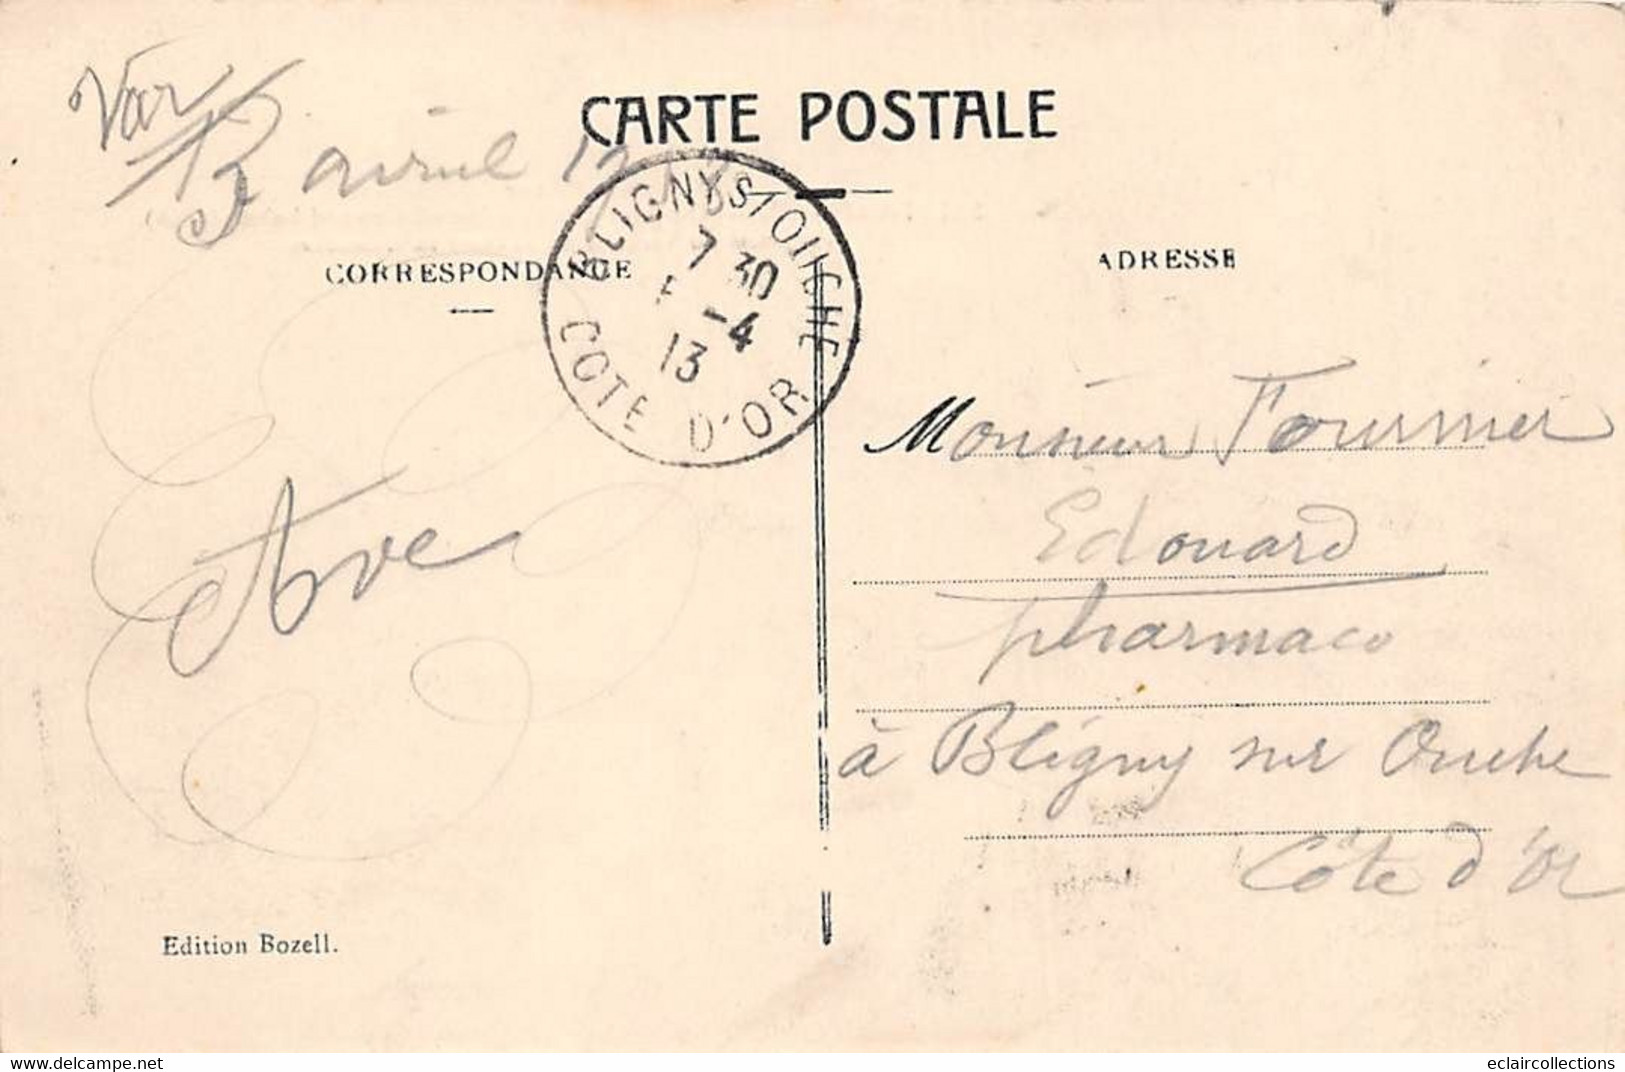 CARTE POSTALE
Var
3 avril
CORRESPONDANCE
ADRESSE
BLIGNY S/ OUCHE
7 30
-4
13
COTE D'OR
Monsieur Fournier
Edouard
pharmacie
à Bligny sur Ouche
Côte d'Or
Edition Bozell.
www.delcampe.net
eclaircollections